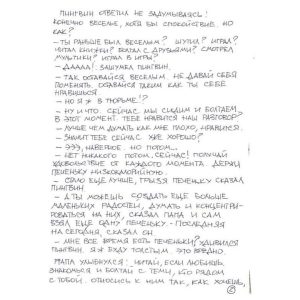 ПИНГВИН ОТВЕТИЛ НЕ ЗАДУМЫВАЯСЬ!
КОНЕЧНО ВЕСЕЛЬЕ, ХОТЯ БЫ СПОКОЙСТВИЕ. НО
КАК?
- ТЫ РАНЬШЕ БЫЛ ВЕСЕЛЫМ? ШУТИЛ? ИГРАЛ?
ЧИТАЛ КНИЖКИ? БОЛТАЛ С ДРУЗЬЯМИ? СМОТРЕЛ
МУЛЬТИКИ? ИГРАЛ В ИГРЫ?
- ДАААА! ЗАШУМЕЛ ПИНГВИН.
- ТАК ОСТАВАЙСЯ ВЕСЕЛЫМ. НЕ ДАВАЙ СЕБЯ
ПОМЕНЯТЬ. ОСТАВАЙСЯ ТАКИМ КАК ТЫ СЕБЕ
НРАВИШЬСЯ
- НО Я Ж В ТЮРЬМЕ!?
- НУ И ЧТО. СЕЙЧАС МЫ СИДИМ И БОЛТАЕМ
В ЭТОТ МОМЕНТ. ТЕБЕ НРАВИТСЯ НАШ РАЗГОВОР?
- ЛУЧШЕ ЧЕМ ДУМАТЬ КАК МНЕ ПЛОХО, НРАВИТСЯ.
- ЗНАЧИТ ТЕБЕ СЕЙЧАС УЖЕ ХОРОШО?
- ЭЭЭ, НАВЕРНОЕ. НО ПОТОМ...
- НЕТ НИКАКОГО ПОТОМ, СЕЙЧАС! ПОЛУЧАЙ
УДОВОЛЬСТВИЕ ОТ КАЖДОГО МОМЕНТА. ДЕРЖИ
ПЕЧЕНЬКУ НИЗКОКАЛОРИЙНУЮ.
- СТАЛО ЕЩЕ ЛУЧШЕ, ГРЫЗЯ ПЕЧЕНЬКУ СКАЗАЛ
ПИНГВИН
- А ТЫ МОЖЕШЬ СОЗДАТЬ ЕЩЕ БОЛЬШЕ
МАЛЕНЬКИХ РАДОСТЕЙ, ДУМАТЬ И КОНЦЕНТРИ-
РОВАТЬСЯ НА НИХ, СКАЗАЛ ПАПА И САМ
ВЗЯЛ ЕЩЕ ОДНУ ПЕЧЕНЬКУ. - ПОСЛЕДНЯЯ
НА СЕГОДНЯ, СКАЗАЛ ОН
- МНЕ ВСЕ ВРЕМЯ ЕСТЬ ПЕЧЕНЬКИ? УДИВИЛСЯ
ПИНГВИН. Я Ж БУДУ ТОЛСТЫМ ЭТО ВРЕДНО.
ПАПА УЛЫБНУЛСЯ: ЧИТАЙ, ЕСЛИ ЛЮБИШЬ,
ЗНАКОМЬСЯ И БОЛТАЙ С ТЕМИ, КТО РЯДОМ
С ТОБОЙ. ОТНОСИСЬ К НИМ ТАК, КАК ХОЧЕШЬ,